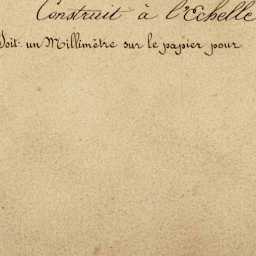 Construit à l'Echelle
Soit un Millimètre sur le papier pour